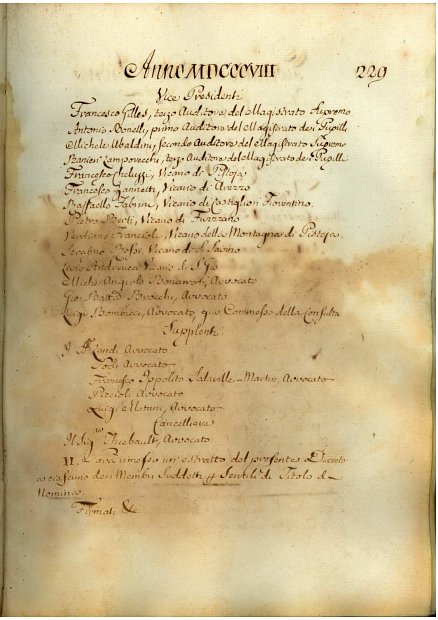 Anno MDCCCVIII 229
Vice Presidenti
Francesco Gilles, terzo Auditore del Magistrato Supremo
Antonio Bonelli, primo Auditore del Magistrato dei Pupilli
Michele Ubaldini, secondo Auditore del Magistrato Supremo
Ranieri Lamporecchi, terzo Auditore del Magistrato dei Pupilli
Francesco Cheluzzi, Vicario di Pistoja
Francesco Giannetti, Vicario di Arezzo
Raffaello Fabrini, Vicario di Castiglion Fiorentino
Pietro Berti, Vicario di Firenzano
Verdiano Francioli, Vicario della Montagna di Pistoja
Serafino Vicario di S. Savino
Andreucci Vicario di S. Gio
Michel Angiolo Bonarroti, Avvocato
Gio. Batta Brocchi, Avvocato
Luigi Bombicci, Avvocato, già Commesso della Consulta
Supplenti
Landi Avvocato
Avvocato
Francesco Ippolito Martin, Avvocato
Piccioli Avvocato
Luigi Avvocato
Cancelliere
Il Sig. Thiebault, Avvocato
II. Sarà rimesso un' estratto del presente Decreto
a ciascuno dei Membri Suddetti Titolo di
Nomina
Firmati &c